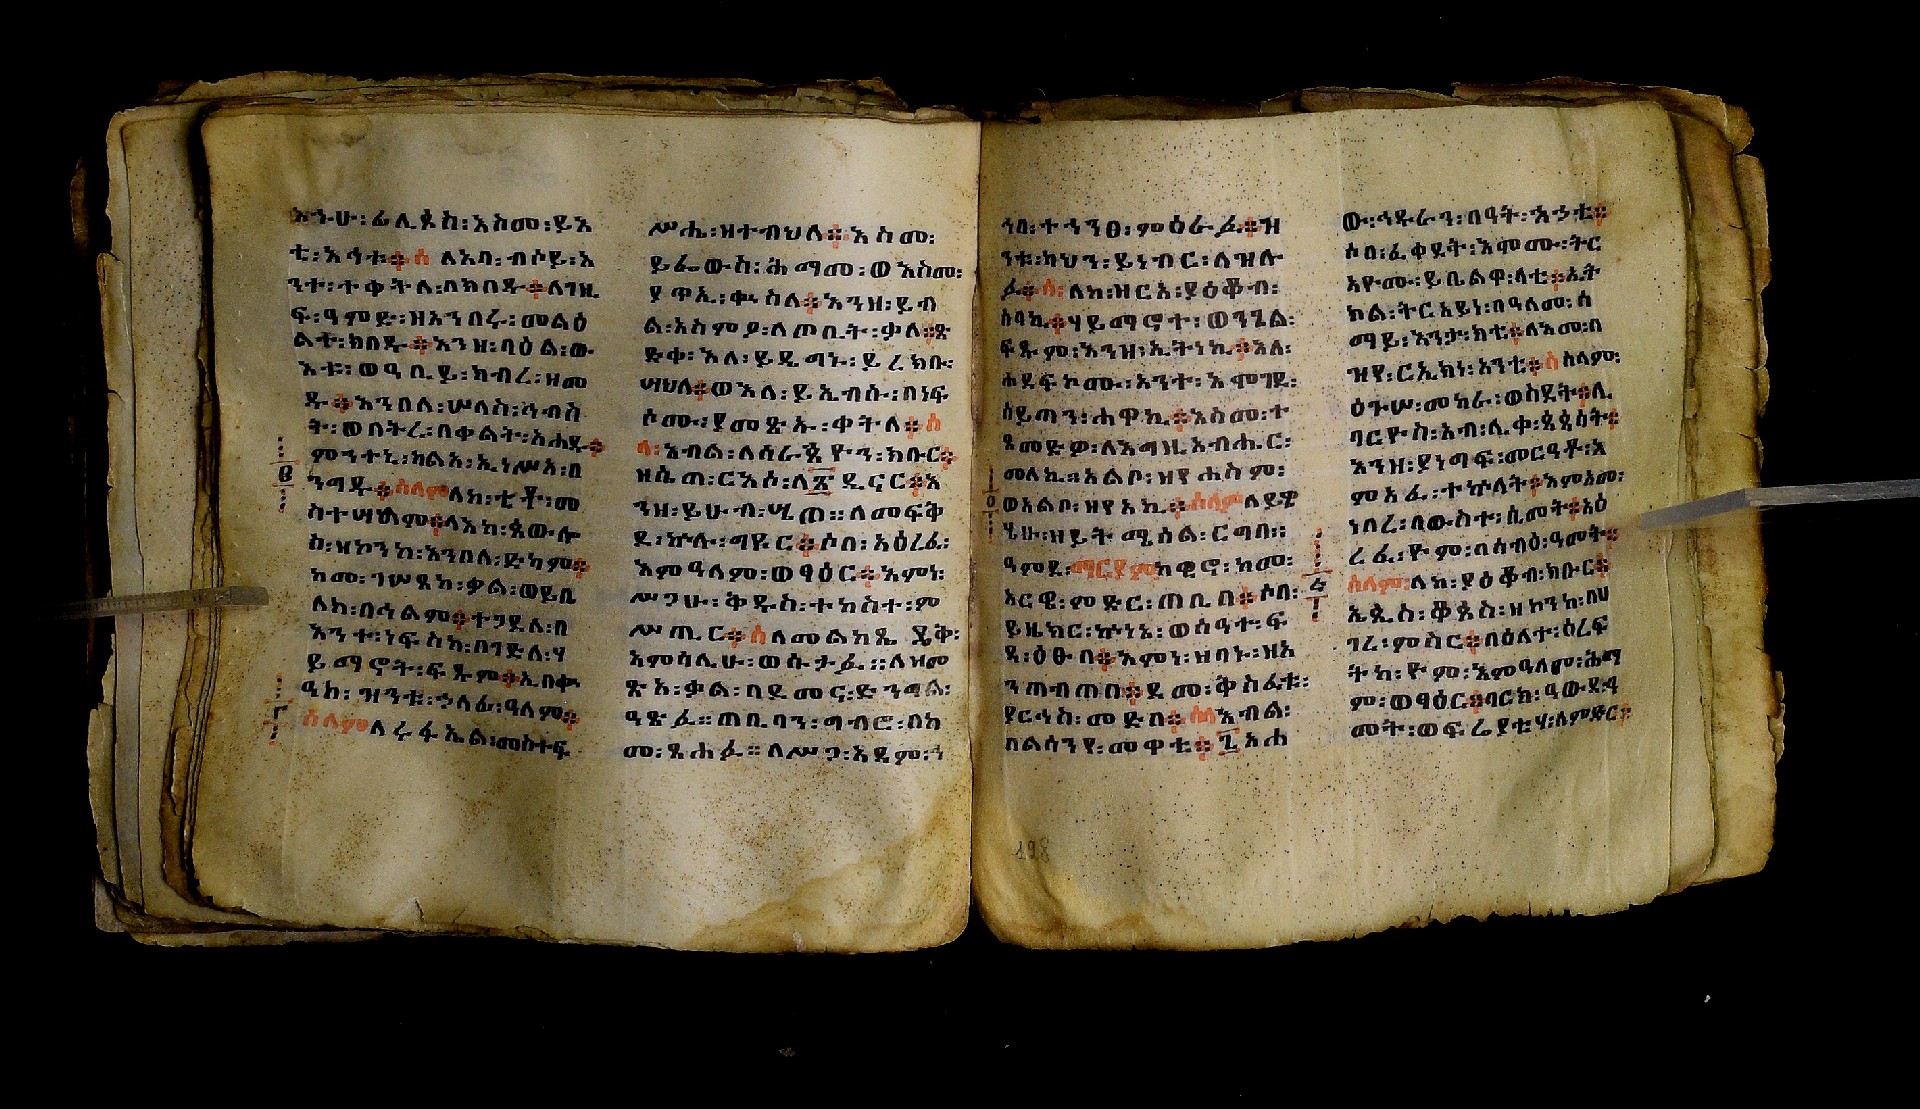 እንሁ፡ፊሊጶስ፡እስመ፡ይእ
ቲ፡እኅቱ፡ ለአባ፡ብሶይ፡እ
ንተ፡ተቀትለ፡በክበዱ፡ለገዚ
ፍ፡ዓምድ፡ዘእንበሩ፡መልዕ
ልተ፡ከበዱ፡እንዘ፡ባዕል፡ው
እቱ፡ወዓቢይ፡ክብረ፡ዘመ
ዱ፡እንበለ፡ሠላስ፡ኅብስ
ት፡ወበትረ፡በቀልት፡አሐዱ
ምንተኒ፡ካልአ፡ኢነሥአ፡በ
ንግዱ፡ሰላም፡ለከ፡ቲቶ፡መ
ስተሣህልም፡ለእከ፡ጳውሎ
ስ፡ዘኮንከ፡እንበለ፡ድካም
ከመ፡ገሠጸከ፡ቃል፡ወይቤ
ለከ፡በሕልም፡ተጋደለ፡በ
እንተ፡ነፍስከ፡በገድለ፡ሃ
ይማኖት፡ፍጹም፡ኢበቍ
ዓከ፡ዝንቱ፡ኃላፊ፡ዓለም
ሰላም፡ለሩፋኤል፡መስተፍ
ሥሔ፡ዘተብህለ፡እስመ፡
ይፌውስ፡ሕማመ፡ወእስመ፡
ያጥኢ፡ቍስለ፡እንዘ፡ይብ
ል፡እስምያ፡ለጦቢት፡ቃለ፡ጽ
ድቀ፡እለ፡ይዴግኑ፡ይረክቡ፡
ሣህለ፡ወእለ፡ይኤብሱ፡በነፍ
ሶሙ፡ያመጽኡ፡ቀትለ፡ሰ
ላ፡እብል፡ለሰራጵዮን፡ክቡር
ዘሴጠ፡ርእሶ፡ለ፳ዲናር፡እ
ንዘ፡ይሁብ፡ሢጠ፡ለመፍቅ
ደ፡ኵሉ፡ግዩር፡ሶበ፡አዕረፈ፡
እምዓለም፡ወፃዕር፡እምነ፡
ሥጋሁ፡ቅዱስ፡ተከስተ፡ም
ሥጢር፡ሰ፡ለመልከጼዴቅ፡
አምሳሊሁ፡ወሱታፌ፡ለዝመ
ጽአ፡ቃል፡በደመና፡ድንግል፡
ዓጽፈ፡ጠቢባን፡ግብሮ፡በከ
መ፡ጸሐፉ፡ለሥጋ፡አዳም፡ኀ
ኀበ፡ተኀንፀ፡ምዕራፉ፡ዝ
ንቱ፡ካህን፡ይነብር፡ለዝሉ
ፉ፡ሰ፡ለከ፡ዝርአ፡ያዕቆብ፡
ሰባኪ፡ሃይማኖተ፡ወንጌል፡
ፍጹም፡እንዘ፡ኢትነኪ፡እለ፡
ሐደፍኮሙ፡እንተ፡እሞገደ፡
ሰይጣን፡ሐዋኪ፡እስመ፡ተ
ጸመድዎ፡ለእግዚአብሔር፡
መለኪ፡አልቦ፡ዘየሐስም፡
ወአልቦ፡ዘየአኪ፡ሰላም፡ለደቂ
ቂሁ፡ዘይትሜሰል፡ርግበ፡
ዓምደ፡ማርያም፡ከዊኖ፡ከመ፡
አርዌ፡ምድር፡ጠቢበ፡ሶበ፡
ይዜከር፡ኵነኔ፡ወሰዓተ፡ፍ
ዳ፡ዕፁበ፡እምነ፡ዝባኑ፡ዝእ
ንጠብጠበ፡ደመ፡ቅስፈቱ፡
ያርኅስ፡መድበ፡ሰላ፡እብል፡
በልሳንየ፡መዋቲ፡፤አሐ
ው፡ኅዱራን፡በዓት፡አኃቲ
ሶበ፡ፈቀደት፡እሞሙ፡ትር
አዮሙ፡ይቤልዋ፡ለቲ፡ኢት
ክል፡ትርአይነ፡በዓለመ፡ሰ
ማይ፡እንታክቲ፡ለእመ፡በ
ዝየ፡ርኢክነ፡አንቲ፡ሰ፡ሰላም፡
ዕጉሠ፡መከራ፡ወስደት፡ለ
ባርዮስ፡አብ፡ሊቀ፡ጳጳሳት፡
እንዘ፡ያነግፍ፡መርዓቶ፡እ
ምአፈ፡ተኵላት፡እምአመ፡
ነበረ፡በውስተ፡ሲመት፡አዕ
ረፈ፡ዮም፡በሰብዕ፡ዓመት
ሰላም፡ለከ፡ያዕቆብ፡ክቡር
ኤጲስ፡ቆጶስ፡ዘኮንከ፡በሀ
ገረ፡ምስር፡በዕለተ፡ዕረፍ
ትከ፡ዮም፡እምዓለም፡ሕማ
ም፡ወፃዕር፡ባርክ፡ዓውደ፡ዓ
መት፡ወፍሬያቲሃ፡ለምድር፡
198